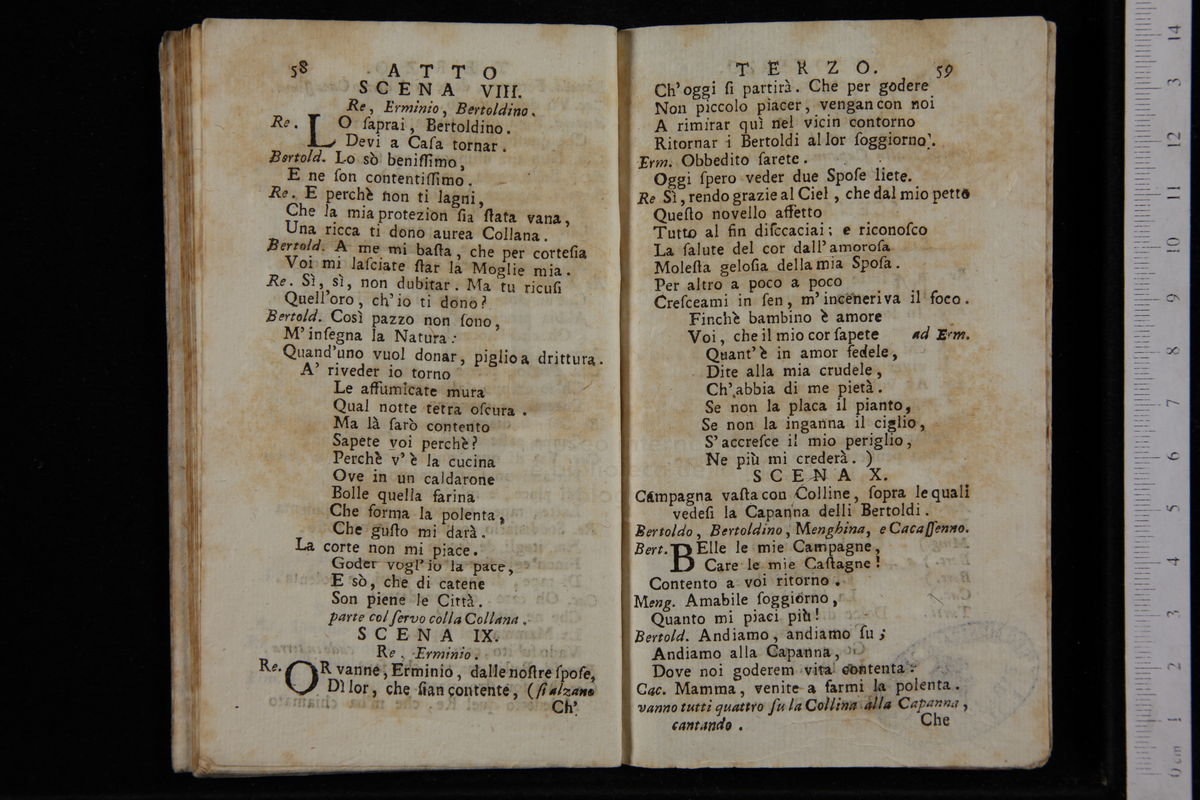 58 ATTO
SCENA VIII.
Re, Erminio, Bertoldino.
Re. LO ſaprai, Bertoldino.
Devi a Caſa tornar.
Bertold. Lo sò beniſſimo,
E ne ſon contentiſſimo.
Re. E perchè non ti lagni,
Che la mia protezion ſia ſtata vana,
Una ricca ti dono aurea Collana.
Bertold. A me mi baſta, che per corteſia
Voi mi laſciate ſtar la Moglie mia.
Re. Sì, sì, non dubitar. Ma tu ricuſi
Quell'oro, ch'io ti dono?
Bertold. Così pazzo non ſono,
M'inſegna la Natura:
Quand'uno vuol donar, piglio a drittura.
A' riveder io torno
Le affumicate mura
Qual notte tetra oſcura.
Ma là ſarò contento
Sapete voi perchè?
Perchè v'è la cucina
Ove in un caldarone
Bolle quella farina
Che forma la polenta,
Che guſto mi darà.
La corte non mi piace.
Goder vogl'io la pace,
E sò, che di catene
Son piene le Città.
parte col ſervo colla Collana.
SCENA IX.
Re. Erminio.
Re. OR vanne, Erminio, dalle noſtre ſpoſe,
Dì lor, che ſian contente, (ſi alzano
Ch'
TERZO. 59
Ch'oggi ſi partirà. Che per godere
Non piccolo piacer, vengan con noi
A rimirar quì nel vicin contorno
Ritornar i Bertoldi al lor ſoggiorno.
Erm. Obbedito ſarete.
Oggi ſpero veder due Spoſe liete.
Re Sì, rendo grazie al Ciel, che dal mio petto
Queſto novello affetto
Tutto al fin diſcacciai; e riconoſco
La ſalute del cor dall'amoroſa
Moleſta geloſia della mia Spoſa.
Per altro a poco a poco
Creſceami in ſen, m'inceneriva il foco.
Finchè bambino è amore
Voi, che il mio cor ſapete ad Erm.
Quant'è in amor fedele,
Dite alla mia crudele,
Ch'abbia di me pietà.
Se non la placa il pianto,
Se non la inganna il ciglio,
S'accreſce il mio periglio,
Ne più mi crederà. )
SCENA X.
Campagna vaſta con Colline, ſopra le quali
vedeſi la Capanna delli Bertoldi.
Bertoldo, Bertoldino, Menghina, e Cacaſſenno.
Bert. BElle le mie Campagne,
Care le mie Caſtagne!
Contento a voi ritorno.
Meng. Amabile ſoggiorno,
Quanto mi piaci più!
Bertold. Andiamo, andiamo ſu;
Andiamo alla Capanna,
Dove noi goderem vita contenta:
Cac. Mamma, venite a farmi la polenta.
vanno tutti quattro ſu la Collina alla Capanna,
cantando. Che
14
13
12
11
10
9
8
7
6
5
4
3
2
1
0 cm